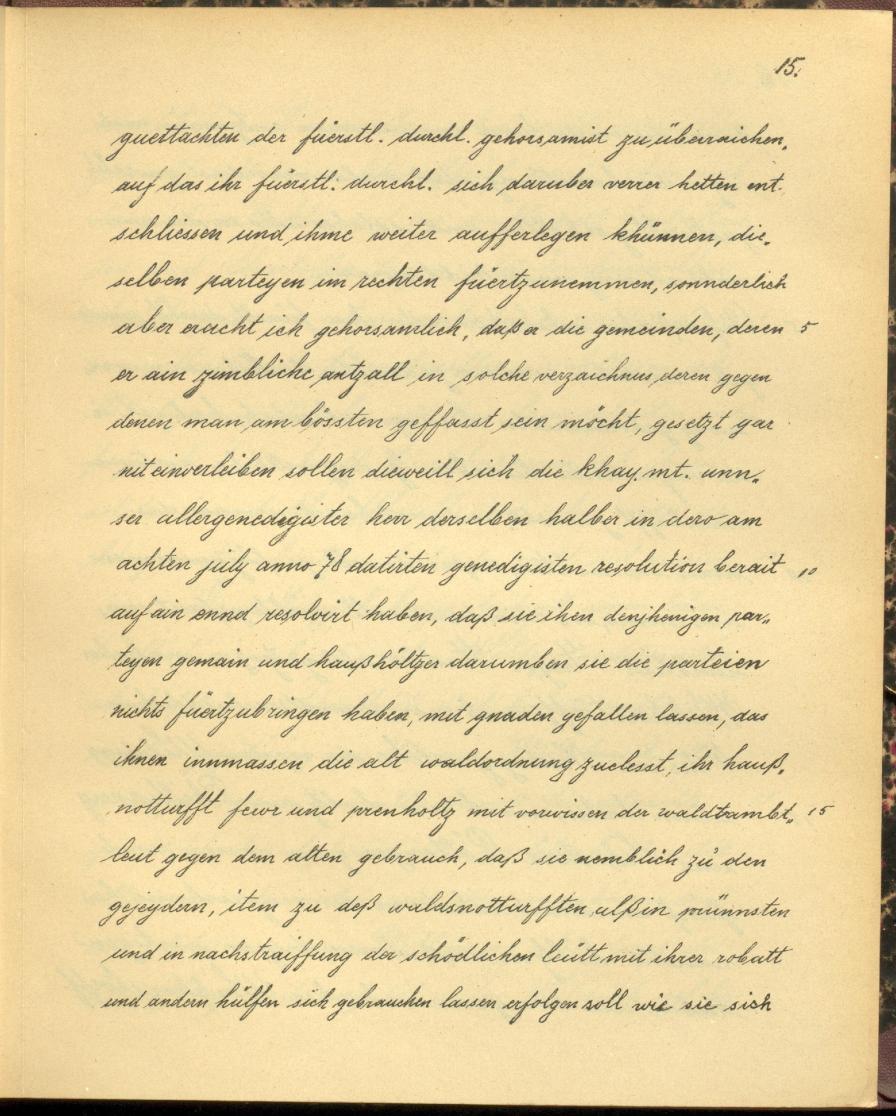 15.
guettachten der füerstl. durchl. gehorsamist zu überraichen,
auf das ihr füerstl: durchl. sich daruber verrer hetten ent-
schliessen und ihme weiter aufferlegen khünnen, die„
selben parteyen im rechten füertzunemmen, sonnderlich
aber eracht ich gehorsamlich, daß er die gemeinden, deren 5
er ain zimbliche antzall in solche verzaichnus, deren gegen
denen man am bössten geffasst sein möcht, gesetzt gar
nit einverleiben sollen dieweill sich die khay. mt. unn„
ser allergenedigister herr derselben halber in dero am
achten july anno 78 datirten genedigisten resolution berait 10
auf ain ennd resolvirt haben, daß sie ihen denjhenigen par„
teyen gemain und haußhöltzer darumben sie die parteien
nichts füertzubringen haben, mit gnaden gefallen lassen, das
ihnen innmassen die alt waldordnung zuelesst, ihr hauß„
notturfft fewr und prenholtz mit vorwissen der waldtambt„ 15
leut gegen dem alten gebrauch, daß sie nemblich zu den
gejeydern, item zu deß waldsnotturfften, alß in prünnsten
und in nachstraiffung der schödlichen leütt mit ihrer robatt
und andern hülffen sich gebrauchen lassen erfolgen soll wie sie sich